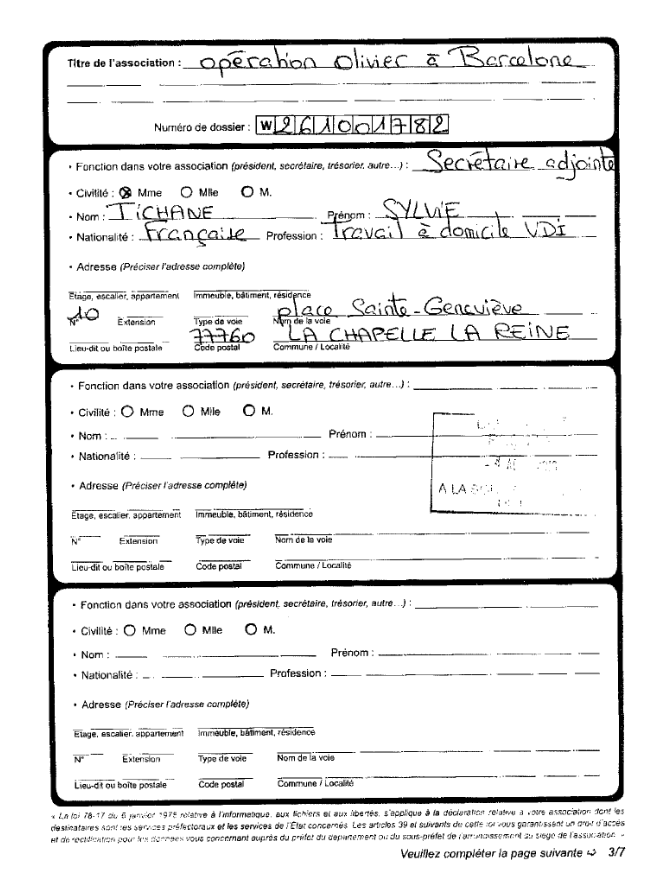 Titre de l'association : opération olivier à Barcelone
Numéro de dossier : W261001782
• Fonction dans votre association (président, secrétaire, trésorier, autre...) : Secrétaire adjointe
• Civilité : Mme Mlle M.
• Nom : TICHANE Prénom : SYLVIE
• Nationalité : Française Profession : Travail à domicile VDI
• Adresse (Préciser l'adresse complète)
Etage, escalier, appartement Immeuble, bâtiment, résidence
10 place Sainte-Geneviève
N° Extension Type de voie Nom de la voie
77760 LA CHAPELLE LA REINE
Lieu-dit ou boîte postale Code postal Commune / Localité
• Fonction dans votre association (président, secrétaire, trésorier, autre...) :
• Civilité : Mme Mlle M.
• Nom : Prénom :
• Nationalité : Profession :
• Adresse (Préciser l'adresse complète)
A LA
Etage, escalier, appartement Immeuble, bâtiment, résidence
N° Extension Type de voie Nom de la voie
Lieu-dit ou boîte postale Code postal Commune / Localité
• Fonction dans votre association (président, secrétaire, trésorier, autre...) :
• Civilité : Mme Mlle M.
• Nom : Prénom :
• Nationalité : Profession :
• Adresse (Préciser l'adresse complète)
Etage, escalier, appartement Immeuble, bâtiment, résidence
N° Extension Type de voie Nom de la voie
Lieu-dit ou boîte postale Code postal Commune / Localité
« La loi 78-17 du 6 janvier 1978 relative à l'informatique, aux fichiers et aux libertés, s'applique à la déclaration relative à votre association dont les
destinataires sont les services préfectoraux et les services de l'État concernés. Les articles 39 et suivants de cette loi vous garantissent un droit d'accès
et de rectification pour les données vous concernant auprès du préfet du département ou du sous-préfet de l'arrondissement du siège de l'association. »
Veuillez compléter la page suivante ⇨ 3/7